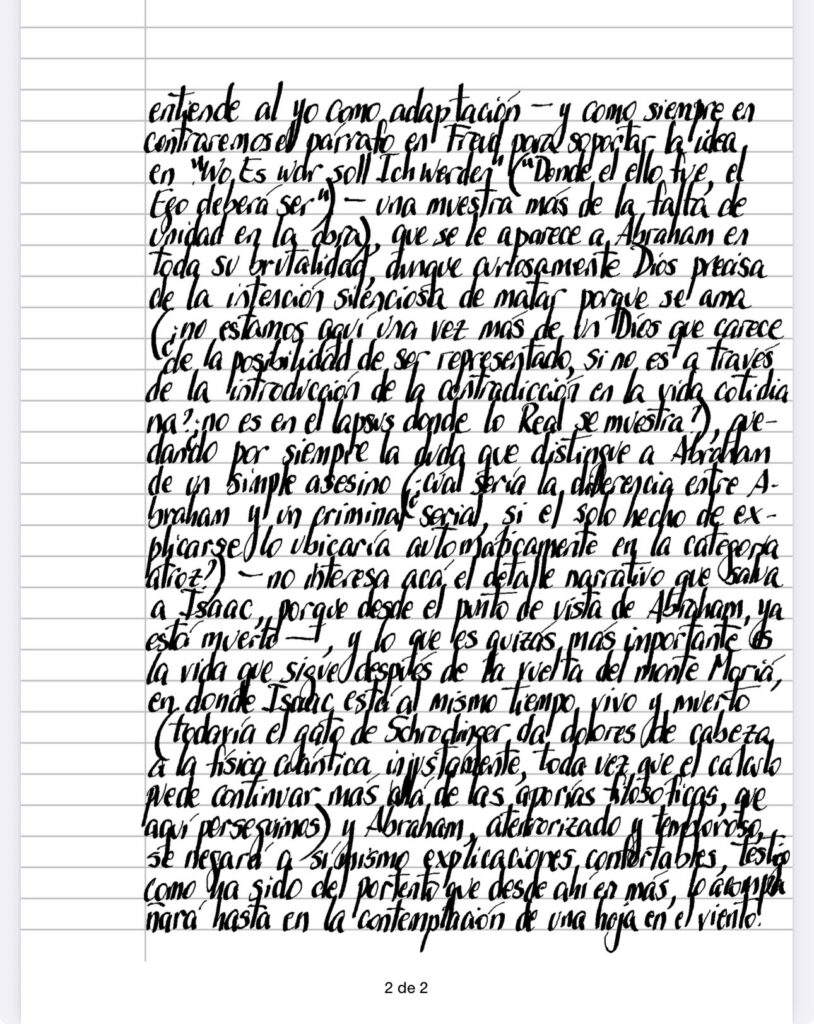 entiende al yo como adaptación — y como siempre en
contraremos el párrafo en Freud para soportar la idea
en "Wo Es war soll Ich werden" ("Donde el ello fue, el
Ego deberá ser") — una muestra más de la falta de
unidad en la obra), que se le aparece a Abraham en
toda su brutalidad, aunque curiosamente Dios precisa
de la intención silenciosa de matar porque se ama
(¿no estamos aquí una vez más de un Dios que carece
de la posibilidad de ser representado, si no es a través
de la introducción de la contradicción en la vida cotidia
na? ¿no es en el lapsus donde lo Real se muestra?), que-
dando por siempre la duda que distingue a Abraham
de un simple asesino (¿cuál sería la diferencia entre A-
braham y un criminal serial, si el solo hecho de ex-
plicarse lo ubicaría automáticamente en la categoría
atroz?) — no interesa acá el detalle narrativo que salva
a Isaac, porque desde el punto de vista de Abraham, ya
está muerto —, y lo que es quizás más importante es
la vida que sigue después de la vuelta del monte Moriá,
en donde Isaac está al mismo tiempo vivo y muerto
(todavía el gato de Schrodinger da dolores de cabeza
a la física cuántica injustamente, toda vez que el cálculo
puede continuar más allá de las aporías filosóficas, que
aquí perseguimos) y Abraham, aterrorizado y tembloroso,
se negará a sí mismo explicaciones confortables, testigo
como ha sido del portento que desde ahí en más, lo acompa
ñará hasta en la contemplación de una hoja en el viento.
2 de 2